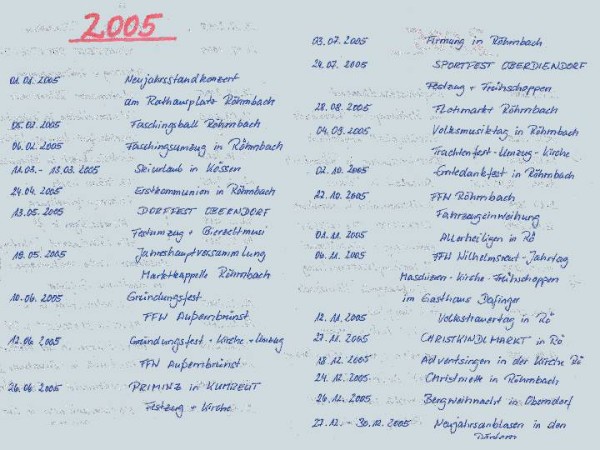 2005
01.01.2005 Neujahrsstandkonzert
am Rathausplatz Röhrnbach
05.02.2005 Faschingsball Röhrnbach
06.02.2005 Faschingsumzug in Röhrnbach
11.03. - 13.03.2005 Skiurlaub in Kössen
24.04.2005 Erstkommunion in Röhrnbach
13.05.2005 DORFFEST OBERNDORF
Festumzug + Bierzeltmusi
19.05.2005 Jahreshauptversammlung
Marktkapelle Röhrnbach
10.06.2005 Gründungsfest
FFW Außernbrünst
12.06.2005 Gründungsfest + Kirche + Umzug
FFW Außernbrünst
26.06.2005 PRIMIZ in KUMREUT
Festzug + Kirche
03.07.2005 Firmung in Röhrnbach
24.07.2005 SPORTFEST OBERDIENDORF
Festzug + Frühschoppen
28.08.2005 Flohmarkt Röhrnbach
04.09.2005 Volksmusiktag in Röhrnbach
Trachtenfest-Umzug-Kirche
02.10.2005 Erntedankfest in Röhrnbach
22.10.2005 FFW Röhrnbach
Fahrzeugeinweihung
01.11.2005 Allerheiligen in Rö
06.11.2005 FFW Wilhelmsreut-Jahrtag
Marschieren-Kirche-Frühschoppen
im Gasthaus
12.11.2005 Volkstrauertag in Rö
27.11.2005 CHRISTKINDLMARKT in Rö
18.12.2005 Adventsingen in der Kirche Rö
24.12.2005 Christmette in Röhrnbach
26.12.2005 Bergweihnacht in Oberndorf
27.12. - 30.12.2005 Neujahrsanblasen in den
Dörfern